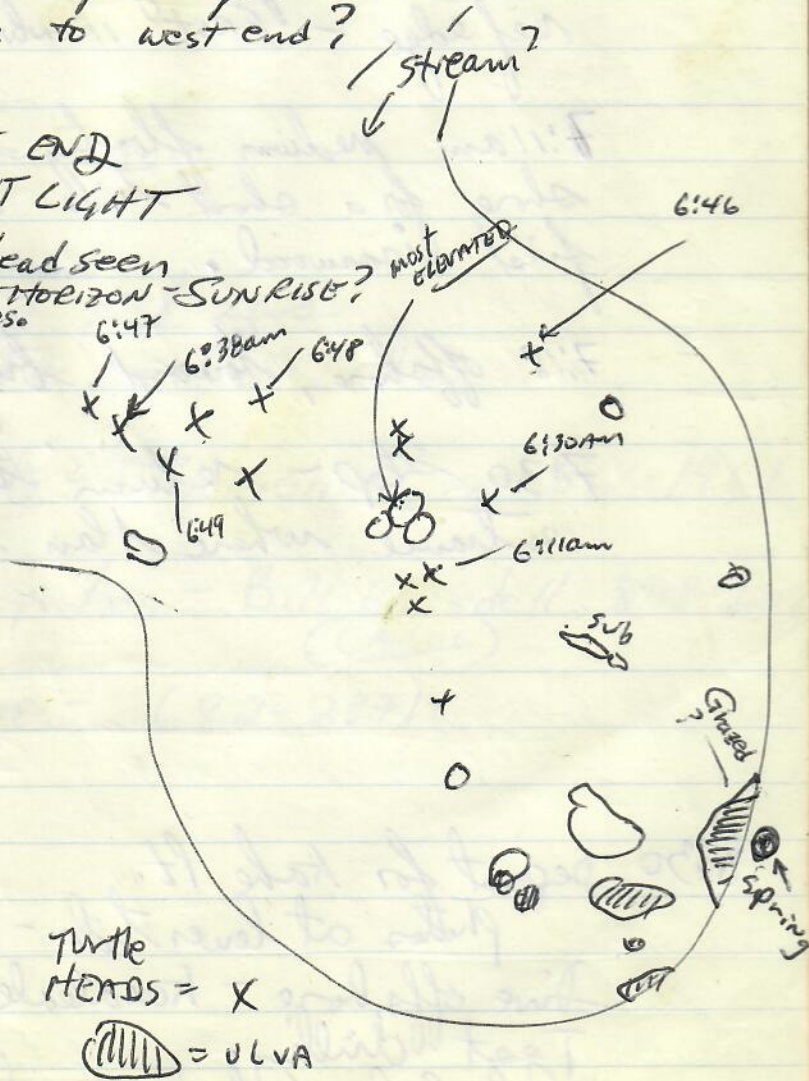 to west end?
stream?
END
LIGHT
seen
HORIZON = SUNRISE?
MOST
ELEVATED
6:46
6:47
6:38am
6:48
6:30AM
6:49
6:11am
sub
Grazed
?
spring
Turtle
HEADS = X
= ULVA